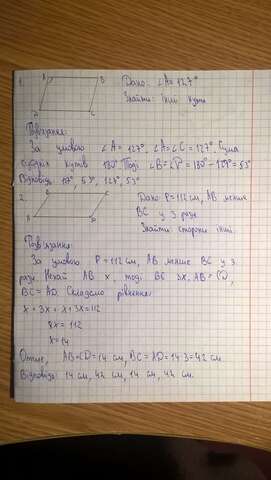 1. A B Дано: ∠A = 127°
Знайти: інші кути
D C
Розв'язання:
За умовою ∠A = 127°, ∠A = ∠C = 127°. Сума
сусідніх кутів 180°. Тоді ∠B = ∠D = 180° - 127° = 53°
Відповідь: 127°, 53°, 127°, 53°
2. B C Дано: P = 112 см, AB менше
A D BC у 3 рази
Знайти сторони інші
Розв'язання:
За умовою P = 112 см, AB менше BC у 3
рази. Нехай AB x, тоді BC 3x. AB = CD,
BC = AD. Складемо рівняння:
x + 3x + x + 3x = 112
8x = 112
x = 14
Отже, AB = CD = 14 см, BC = AD = 14·3 = 42 см
Відповідь: 14 см, 42 см, 14 см, 42 см.